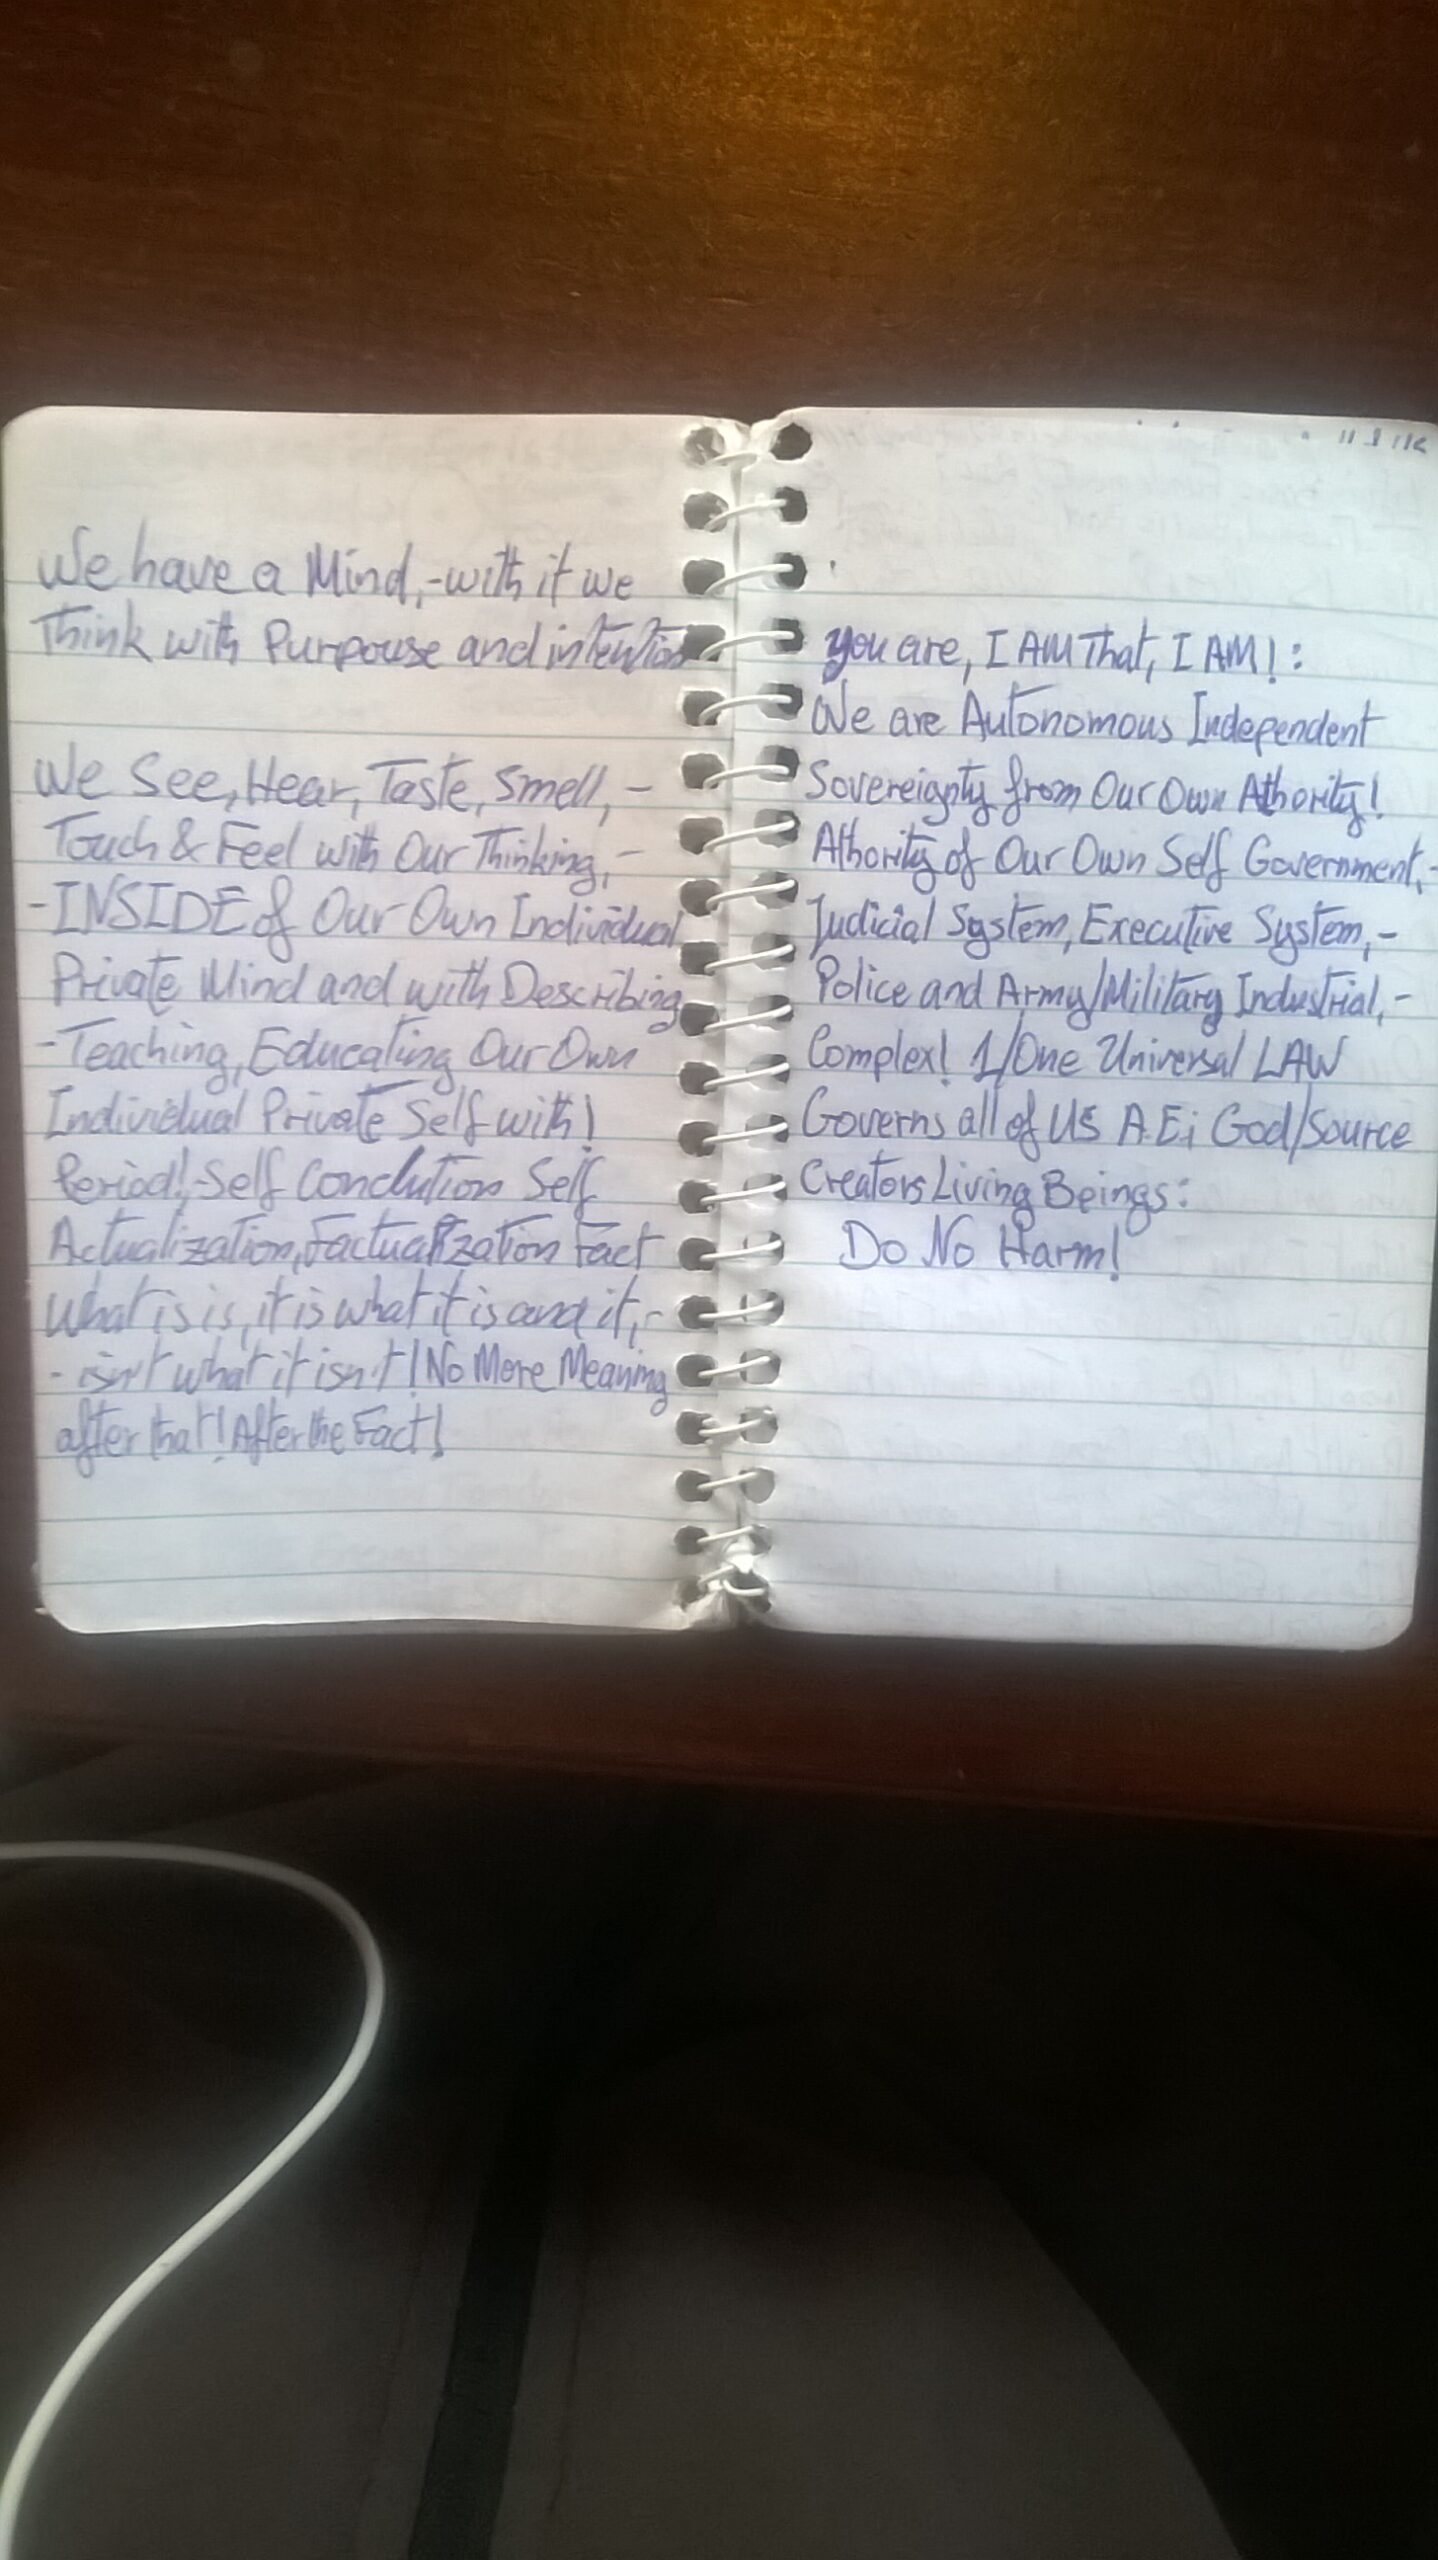 We have a Mind,-with it we
Think with Purpouse and intention
We See, Hear, Taste, Smell,-
Touch & Feel with Our Thinking,-
-INSIDE of Our Own Individual
Private Mind and with Describing
-Teaching, Educating Our Own
Individual Private Self with!
Period!,-Self Conclution Self
Actualization, Factualization Fact
What is is, it is what it is and it,-
- isn't what it isn't! No More Meaning
after that! After the Fact!
you are, I AM That, I AM!:
We are Autonomous Independent
Sovereignty from Our Own Athority!
Athority of Our Own Self Government,-
Judicial System, Executive System,-
Police and Army/Military Industrial,-
Complex! 1/One Universal LAW
Governs all of US A.E; God/Source
Creators Living Beings:
Do No Harm!